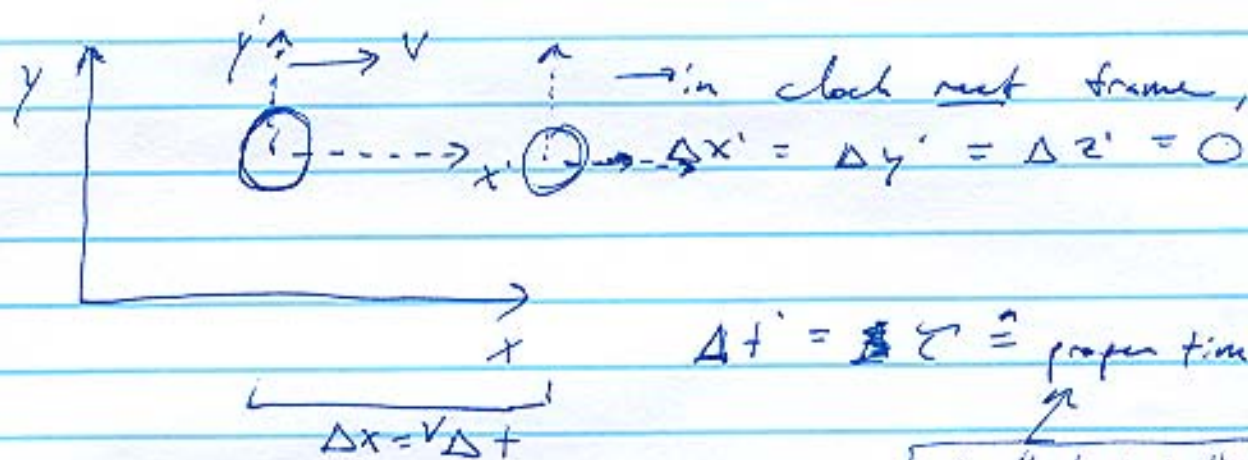 y y' → V → in clock rest frame,
x' Δx' = Δy' = Δz' = 0
x Δt' = τ ≙ proper time
Δx = VΔt